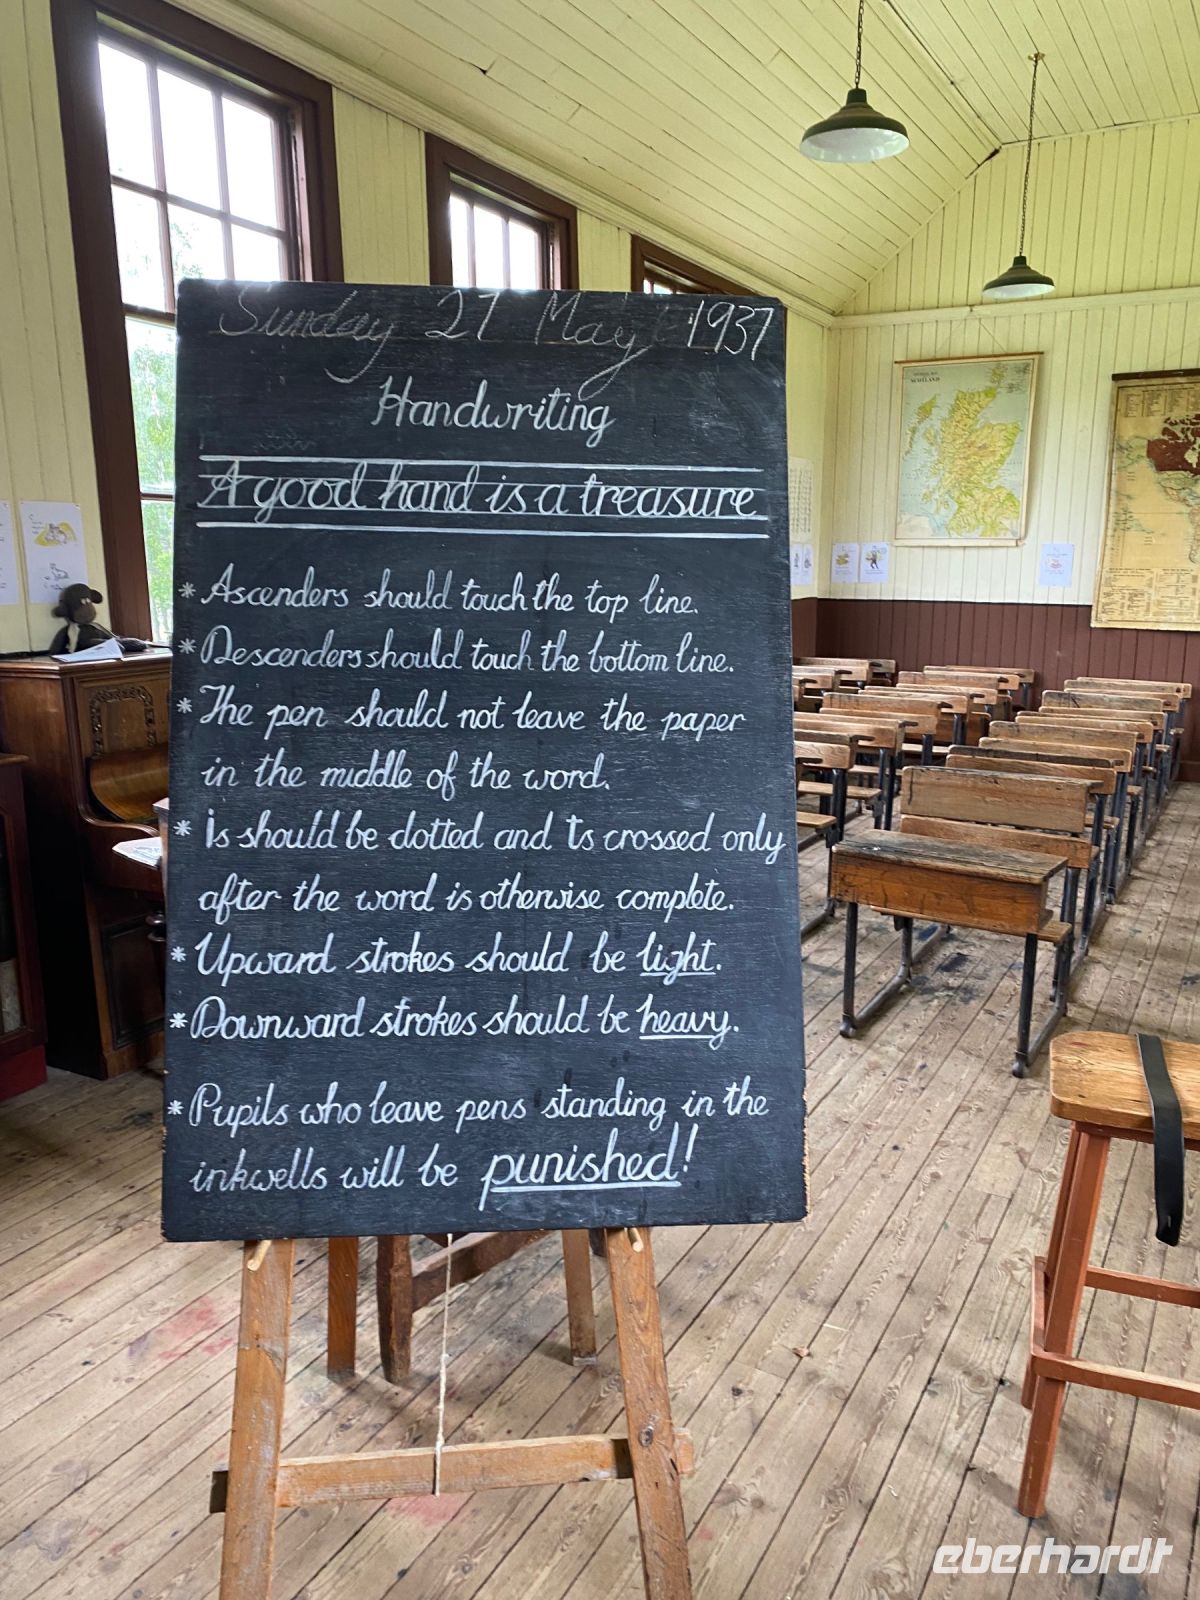 Sunday 27 May 1937
Handwriting
A good hand is a treasure
* Ascenders should touch the top line.
* Descenders should touch the bottom line.
* The pen should not leave the paper
in the middle of the word.
* is should be dotted and ts crossed only
after the word is otherwise complete.
* Upward strokes should be light.
* Downward strokes should be heavy.
* Pupils who leave pens standing in the
inkwells will be punished!
SCOTLAND
eberhardt